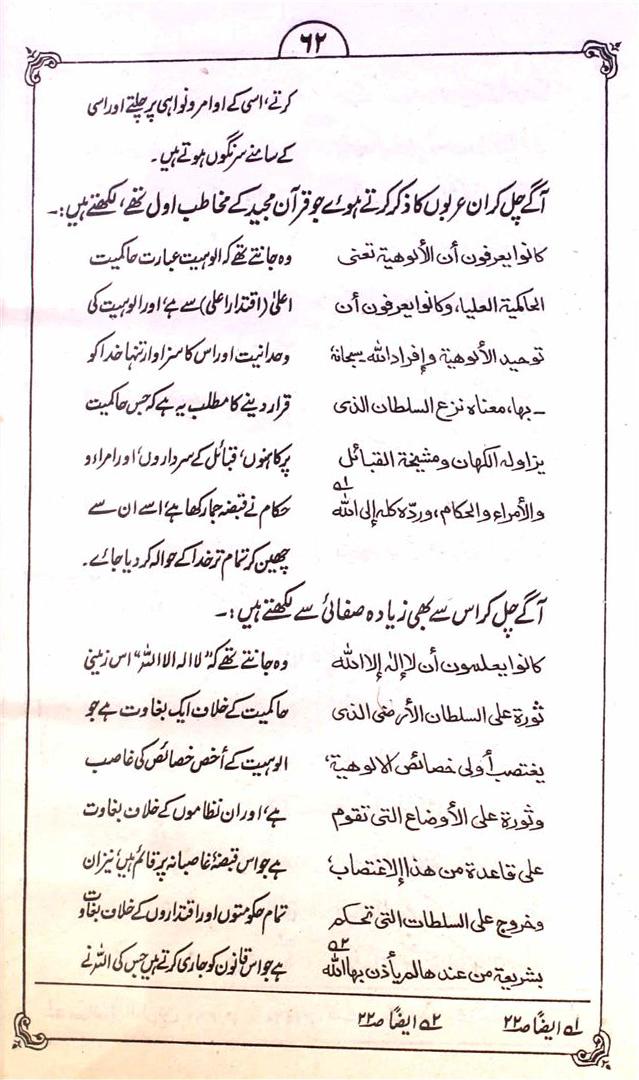 ۶۲
کرتے، اسی کے اوامر و نواہی پر چلتے اور اسی
کے سامنے سرنگوں ہوتے ہیں۔
آگے چل کر ان عربوں کا ذکر کرتے ہوئے جو قرآن مجید کے مخاطب اول تھے، لکھتے ہیں:۔
كانوا يعرفون أن الألوهية تعنى
الحاكمية العليا، وكانوا يعرفون أن
توحيد الألوهية وإفراد الله سبحانه
ـ بها، معناه نزع السلطان الذى
يزاوله الكهان ومشيخة القبائل
والأمراء والحكام، وردّه كله إلى الله ؂۱
وہ جانتے تھے کہ الوہیت عبارت حاکمیت
اعلیٰ (اقتدار اعلیٰ) سے ہے، اور الوہیت کی
وحدانیت اور اس کا سزاوار تنہا خدا کو
قرار دینے کا مطلب یہ ہے کہ جس حاکمیت
پر کاہنوں، قبائل کے سرداروں، اور امراء و
حکام نے قبضہ جما رکھا ہے، اسے ان سے
چھین کر تمام تر خدا کے حوالہ کر دیا جائے۔
آگے چل کر اس سے بھی زیادہ صفائی سے لکھتے ہیں:۔
كانوا يعلمون أن لا إله إلا الله
ثورة على السلطان الأرضى الذى
يغتصب أولى خصائص الالوهية،
وثورة على الأوضاع التى تقوم
على قاعدة من هذا الإغتصاب،
وخروج على السلطات التى تحكم
بشريعة من عندها لم يأذن بها الله ؂۲
وہ جانتے تھے کہ ”لا الہ الا اللہ“ اس زمینی
حاکمیت کے خلاف ایک بغاوت ہے جو
الوہیت کے أخص خصائص کی غاصب
ہے، اور ان نظاموں کے خلاف بغاوت
ہے جو اس قبضۂ غاصبانہ پر قائم ہیں، نیز ان
تمام حکومتوں اور اقتداروں کے خلاف بغاوت
ہے جو اس قانون کو جاری کرتے ہیں جس کی اللہ نے
؂۱ ایضًا صـ۲۲ ؂۲ ایضًا صـ۲۲